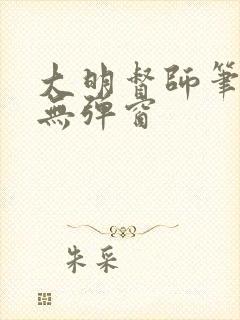 大明督師筆
無彈窗
朱采